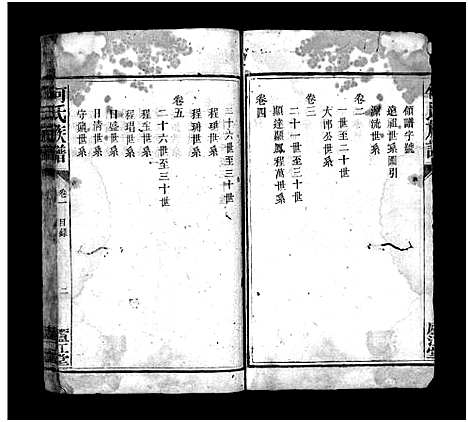 領譜字號
遠祖世系圖引
源流世系
卷二
一世至二十世
大郎公世系
卷三
二十一世至三十世
顯達顯鳳程萬世系
卷四
三十六世至三十世
程珊世系
卷五
二十六世至三十世
程至世系
程瑁世系
日盛世系
日清世系
守
世系
何氏族譜
卷一
目錄
二
廬江堂